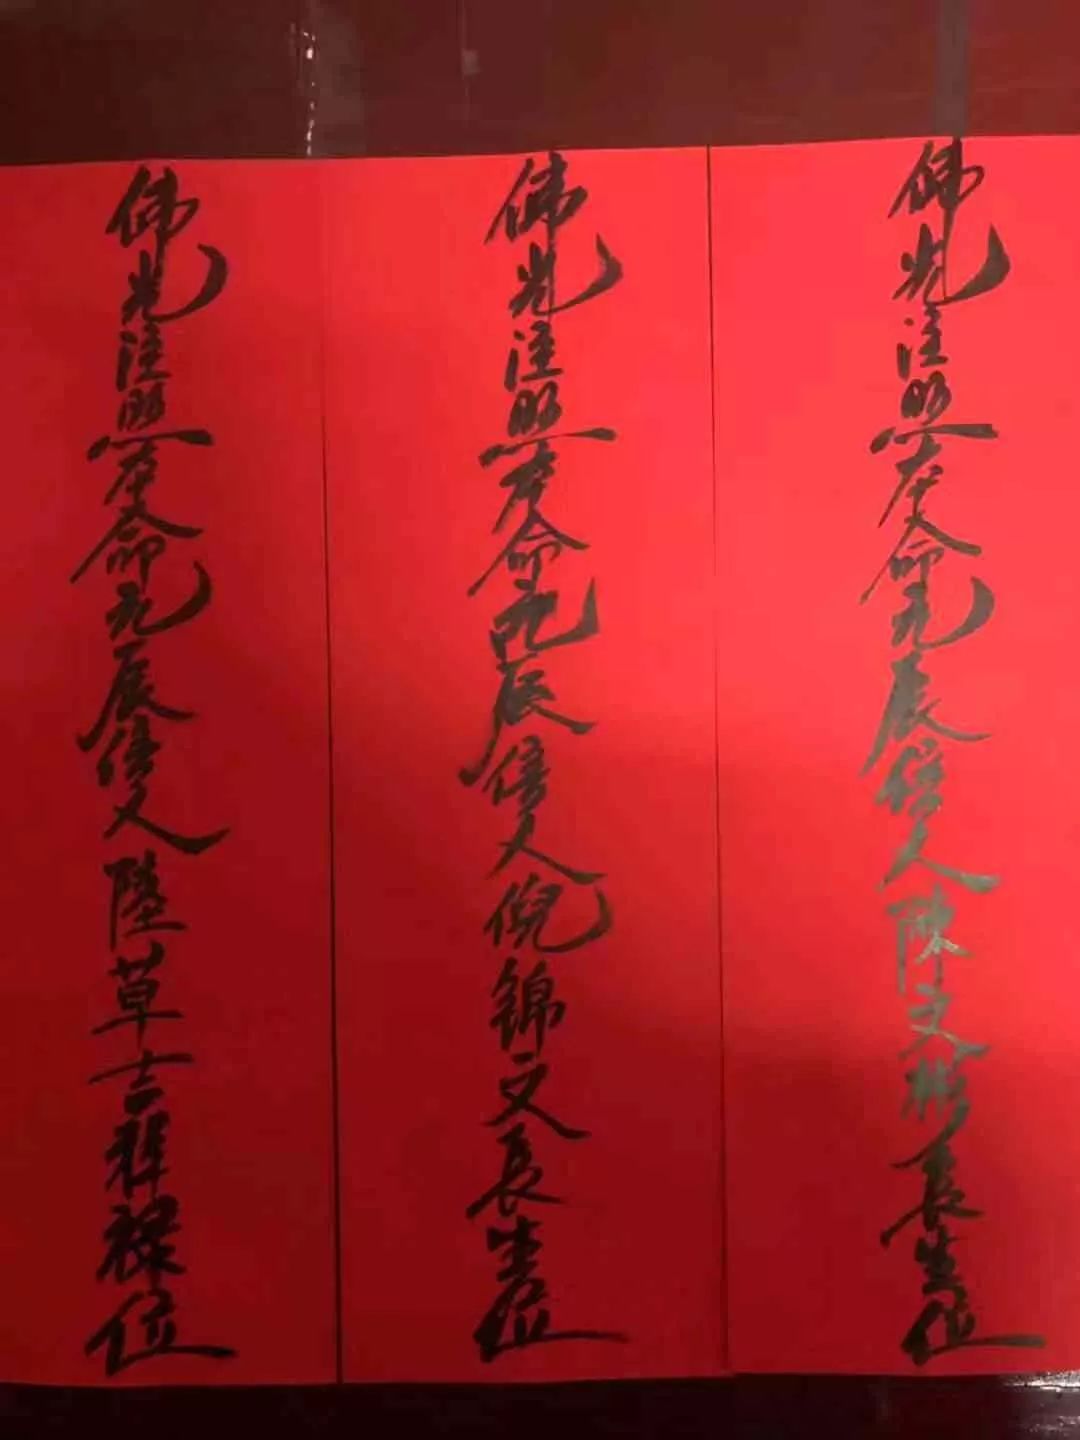 佛光注照本命元辰信人陳文彬長生位
佛光注照本命元辰信人倪錦文長生位
佛光注照本命元辰信人陸草吉祥祿位